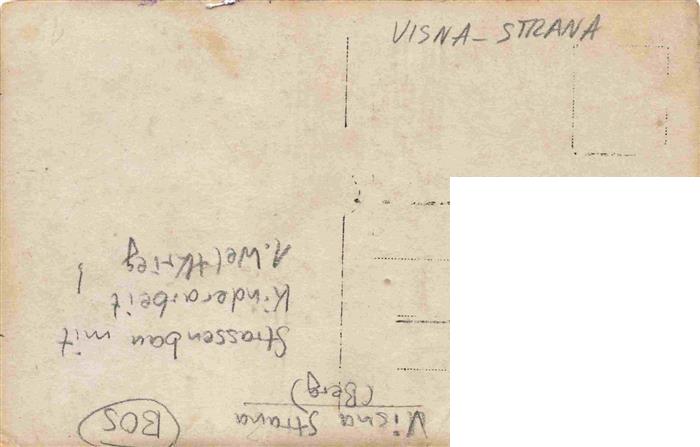 VISNA-STRANA
Visna Strana
(Berg)
BOS
Strassenbau mit
Kinderarbeit,
1. Weltkrieg